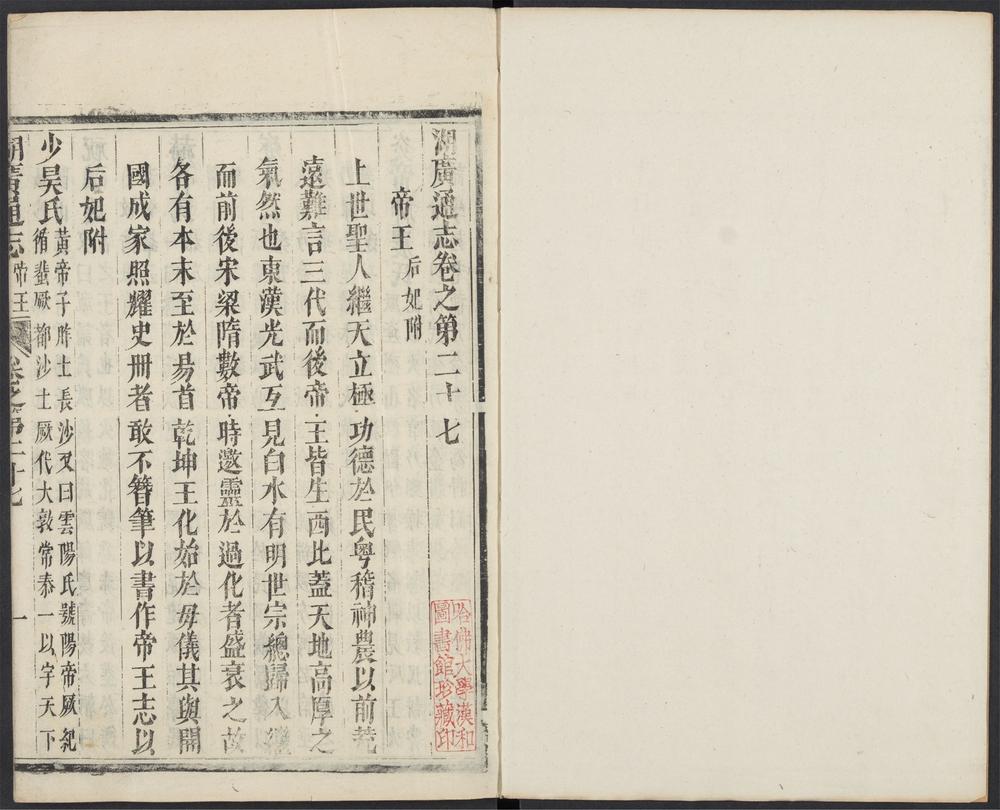 湖廣通志卷之第二十七
帝王后妃附
上世聖人繼天立極功德於民粵稽神農以前荒
遠難言三代而後帝王皆生西北蓋天地高厚之
氣然也東漢光武互見白水有明世宗總歸入繼
而前後宋梁隋數帝時邀靈於過化者盛衰之故
各有本末至於易首乾坤王化始於毋儀其與開
國成家照耀史冊者敢不簪筆以書作帝王志以
后妃附
少昊氏黃帝子胙土長沙又曰雲陽氏號陽帝厥紀
循蜚厥都沙土厥代大敦常泰一以字天下
湖廣通志 帝王 卷之第二十七 一
哈佛大學漢和
圖書館珍藏印